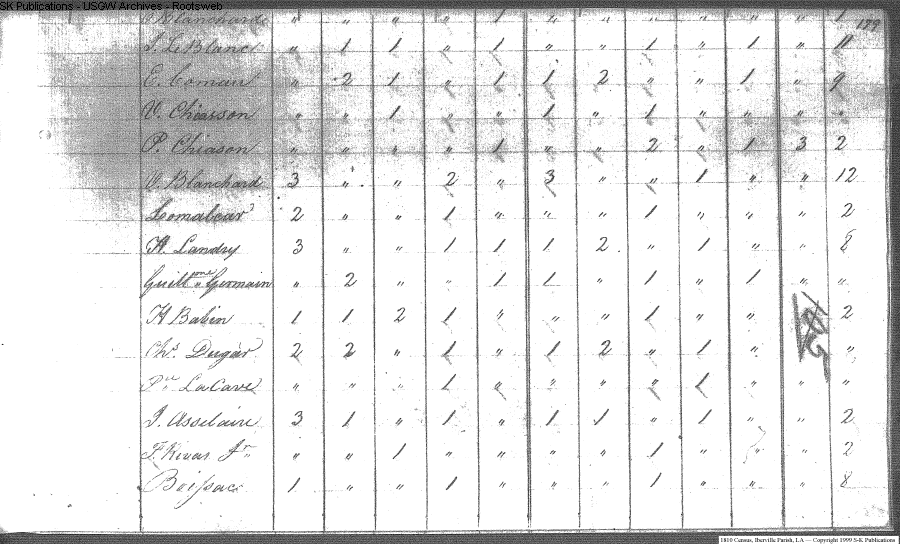 SK Publications - USGW Archives - Rootsweb
189
Blanchard " " " " 1 " " " " " " 1
J. LeBlanc " 1 1 " 1 " " 1 " 1 " 11
E. Comau " 2 1 " 1 1 2 " " 1 " 9
V. Chiasson " " 1 " " 1 " 1 " " " "
P. Chiason " " " " 1 " " 2 " 1 3 2
V. Blanchard 3 " " 2 " 3 " " 1 " " 12
2 " " 1 " " " 1 " " " 2
H. Landry 3 " " 1 1 1 2 " 1 " " 8
Guillme Germain " 2 " " 1 1 " 1 " 1 " "
H Babin 1 1 2 1 " " " 1 " " 2
Chs. Dugar 2 2 " 1 " 1 2 " 1 " "
Pre LaCave " " " 1 " " " " 1 " " "
J. Asselaire 3 1 " 1 " 1 1 " 1 " " 2
F. Rivas Jr " " 1 " " " " 1 " " " 2
Boissac 1 " " 1 " " " 1 " " " 8
1810 Census, Iberville Parish, LA — Copyright 1999 S-K Publications